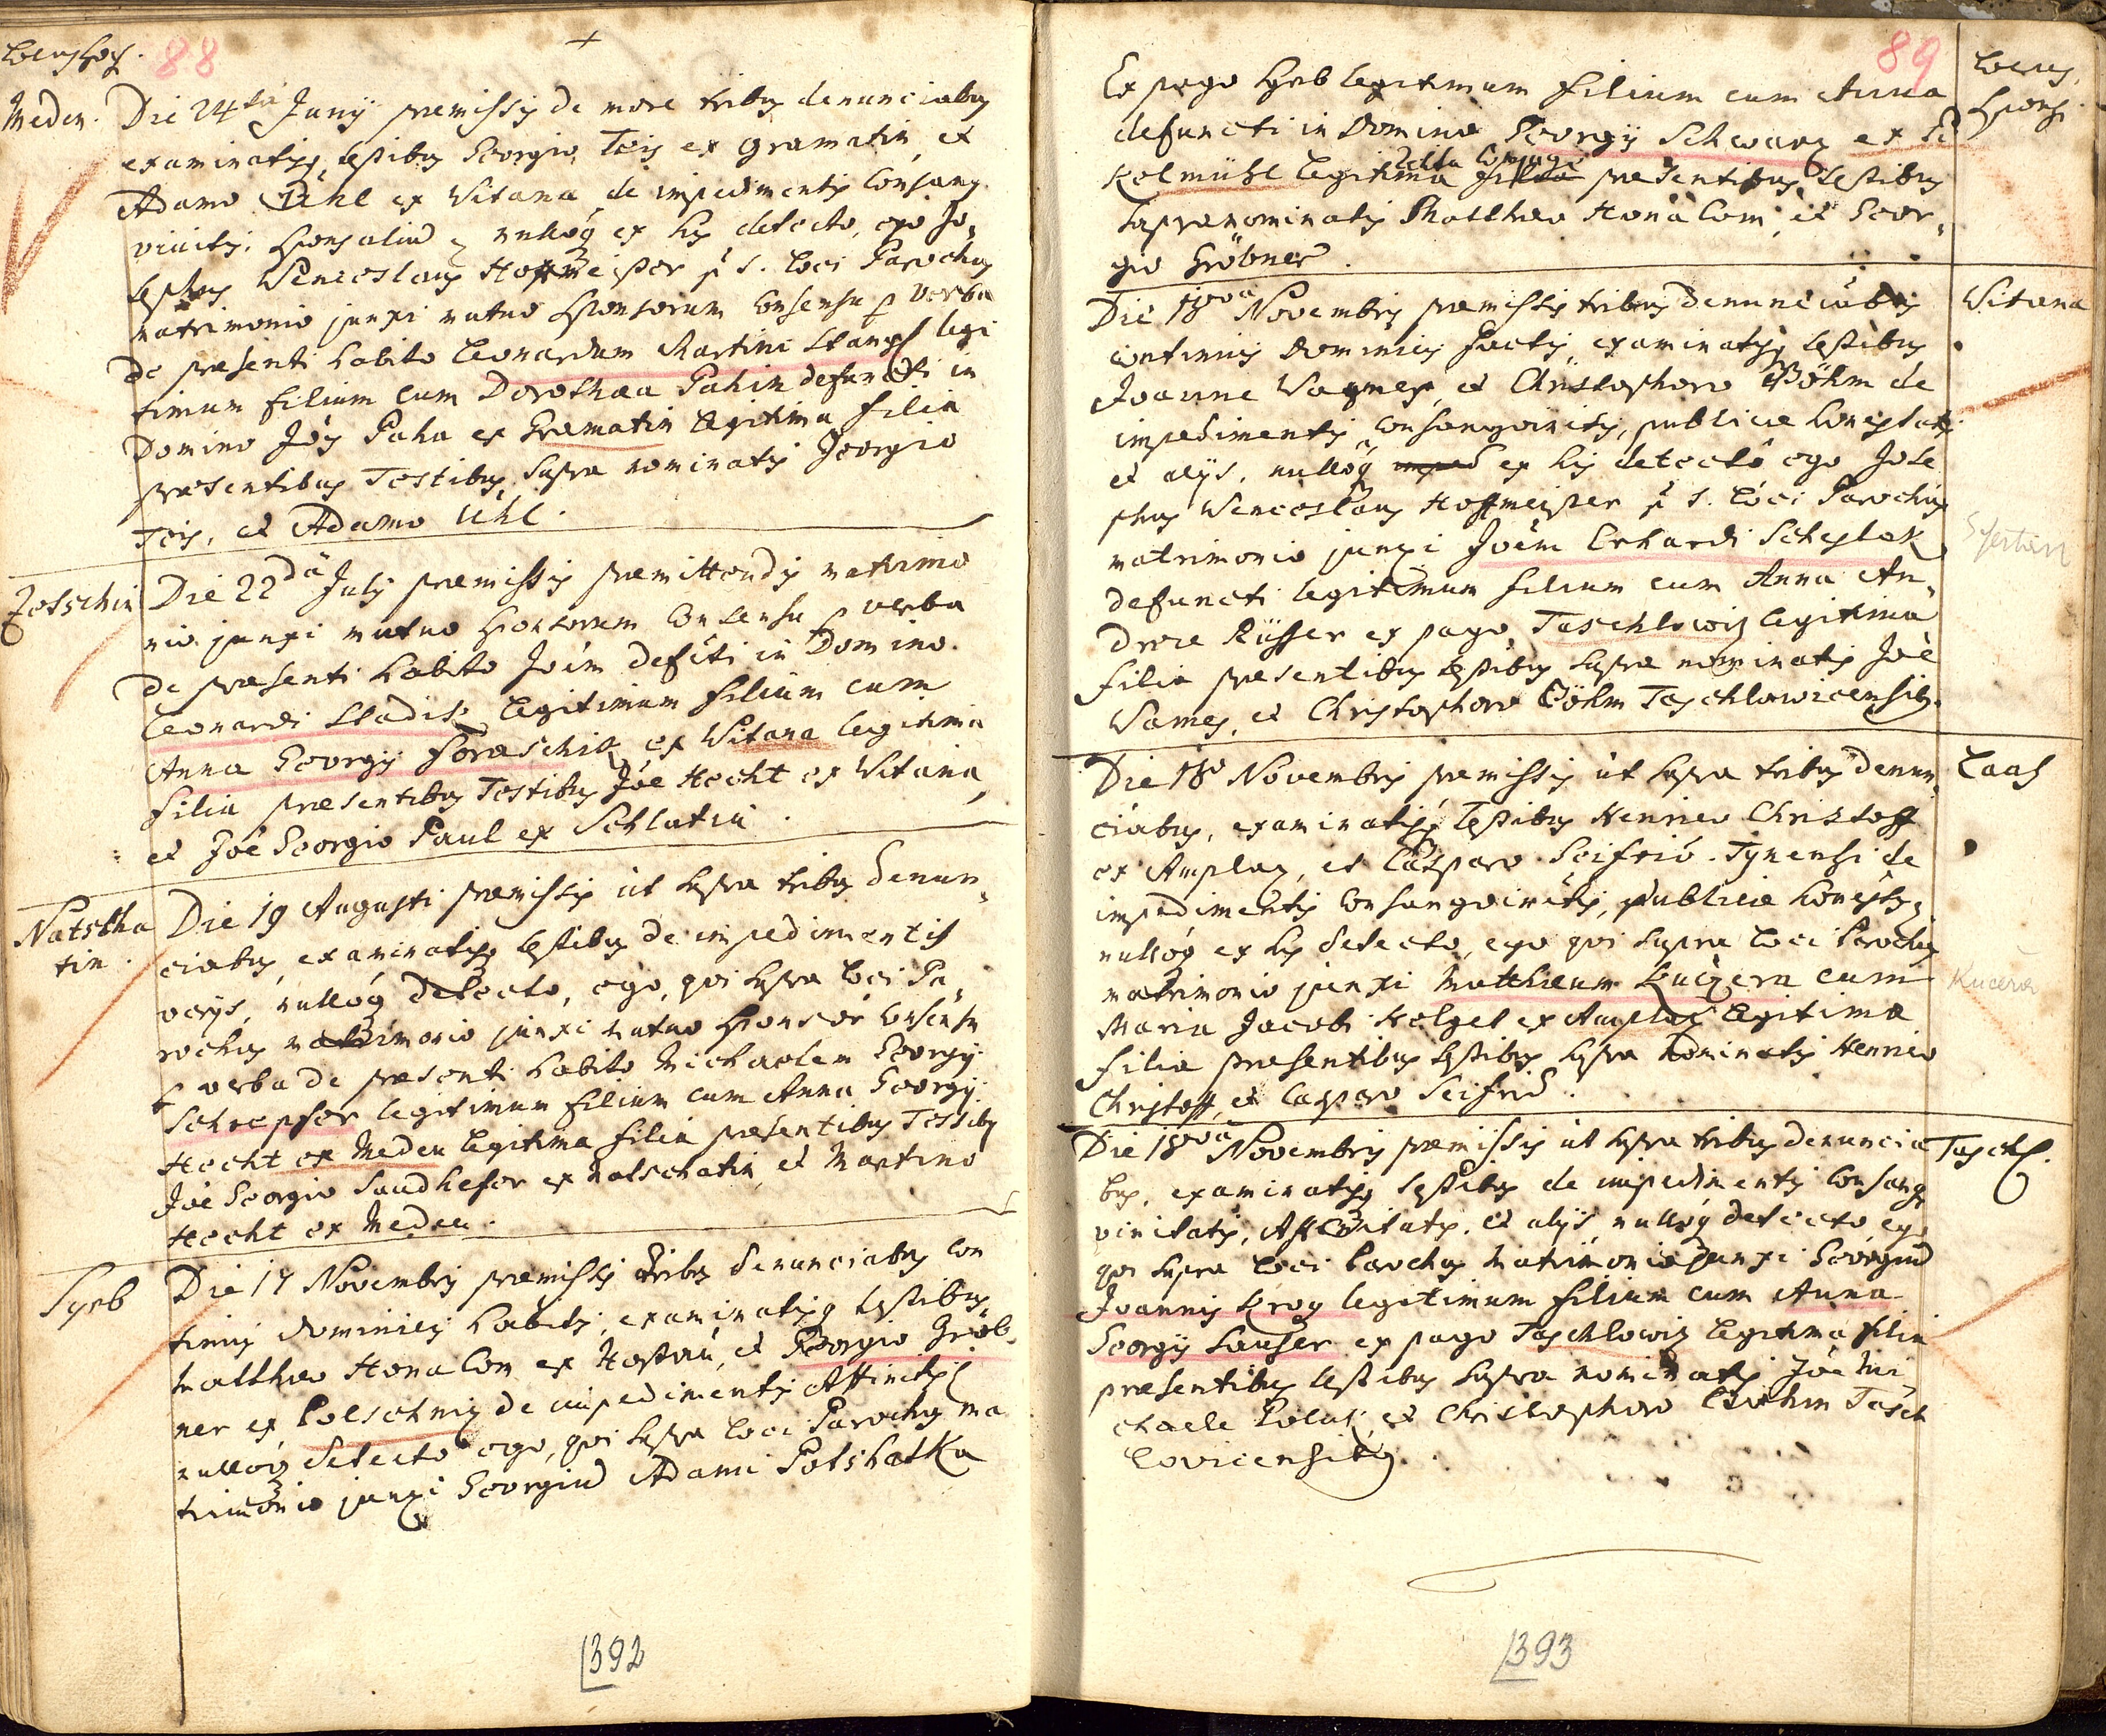 88
Locus Spons.
Meden.
Die 24ta Junÿ præmissis de more tribus denunciabus
examinatisq testibus Georgio Teis ex Gramatin, et
Adamo Uhl ex Witana de impedimentis Consang
vinitis: Sponsaliud nulloq ex his detecto, ego Jo,
sephus Wenceslaus Hoffmeister p t. Loci Parochus
matrimonio junxi mutuo Sponsorum Consensu p verba
de præsenti habito Leonardum Martini Stampf legi
timum filium cum Dorothæa Pahin defuncti in
Domino Jois Paha ex Gramatin legitima filia
præsentibus Testibus supra nominatis Georgio
Teis, et Adamo Uhl.
Zetschin
Die 22da Julÿ præmissis præmittendis matrimo
nio junxi mutuo Sponsorum Consensu p verba
de præsenti habito Joem defucti in Domino.
Leonardi Stadik legitimum filium cum
Anna Georgÿ Foraschik ex Witana legitima
filia præsentibus Testibus Joe Hecht ex Witana,
et Joe Georgio Paul ex Schlatin.
Natscha
tin.
Die 19 Augusti præmissis ut supra tribus denun,
ciabus, examinatisq testibus de impedimentis
varÿs, nulloq detecto, ego, qui supra Loci Pa,
rochus matrimonio junxi mutuo Sponsor Consensu
p verba de præsenti habito Michaelem Georgÿ
Schrepfer legitimum filium cum Anna Georgÿ
Hecht ex Meden legitima filia præsentibus Testibus
Joe Georgio Sandhefer ex Natschatin, et Martino
Hecht ex Meden.
Syrb
Die 17 Novembris præmissis tribus denunciabus con
tinuis Dominicis habitis, examinatisq testibus
Matthæo Hona Com ex Hostau, et Georgio Gröb
ner ex Polschniz de impedimentis Affinitis
nulloq detecto ego, qui supra Loci Parochus ma
trimonio junxi Georgiud Adami Potshatka
392
89
Locus
Spons.
Ex pago Syrb legitimum filium cum Anna
defuncti in Domino Georgÿ Schwarz ex
Kolmühl legitima filia præsentibus testibus
supranominatis Matthæo Hona Com, et Geor,
gio Gröbner.
Witana
Die 18va Novembris præmissis tribus denunciabus
continuis Dominicis factis, examinatisq testibus
Joanne Wagner, et Christophoro Böhm de
impedimentis Consangvinitis, publicæ honestatis
et alÿs, nulloq ex his detecto ego Jose
phus Wenceslaus Hoffmeister p t. Loci Parochus
matrimonio junxi Joem Erhardi Scheslak
defuncti legitimum filium cum Anna An,
dreæ Rüsser ex pago Taschlowiz legitima
filia præsentibus testibus supra nominatis Joe
Wames, et Christophoro Böhm Taschlowicensibus.
Laas
Die 18 Novembris præmissis ut supra tribus denun,
ciabus, examinatisq testibus Henrico Christoff
ex Amplaz, et Casparo Seifrid Tynensi de
impedimentis Consangvinitis, publicæ honestis,
nulloq ex his detecto, ego qui supra Loci Parochus
matrimonio junxi Matthæum Kuczera cum
Kučera
Maria Jacobi Holget ex Amplaz legitima
filia præsentibus testibus supra nominatis Henrico
Christoff, et Casparo Seifrid.
Taschl.
Die 18va Novembris præmissis ut supra tribus denuncia
bus, examinatisq testibus de impedimentis Consang
vinitatis, Affinitatis, et alÿs, nulloq detecto, ego
qui supra Loci Parochus matrimonio junxi Georgiud
Joannis Kroy legitimum filium cum Anna
Georgÿ Sauser ex pago Taschlowiz legitima filia
præsentibus testibus supra nominatis Joe Mi,
chaele Polak, et Christophoro Böhm Tasch
lovicensibus.
393